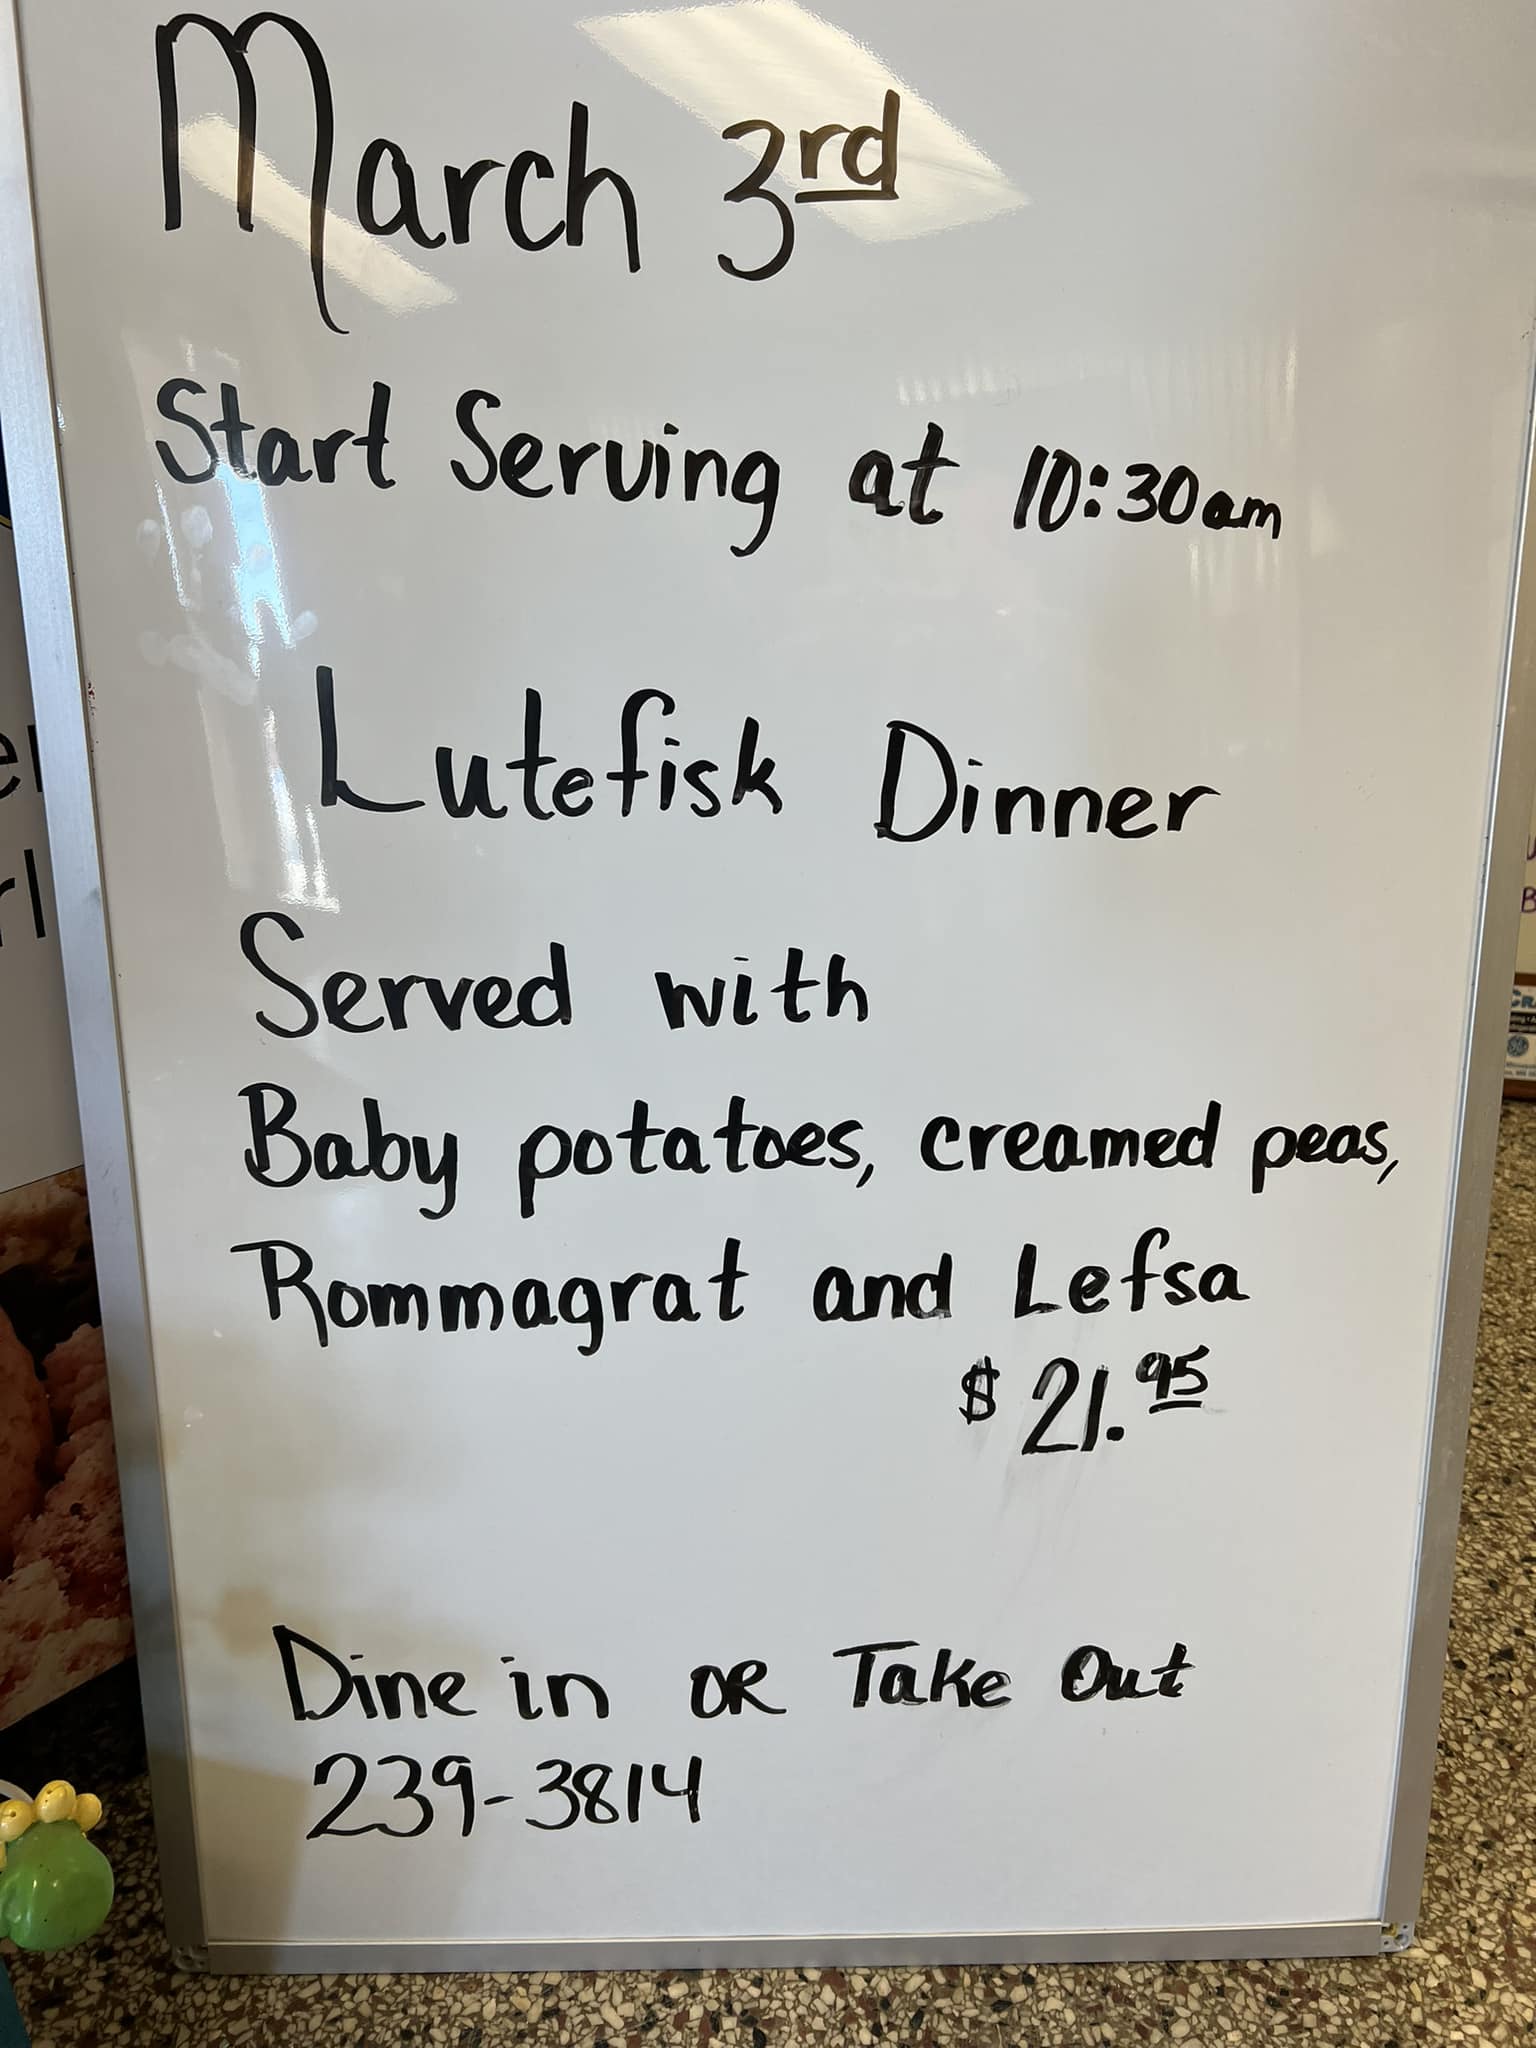 March 3rd
Start Serving at 10:30am
Lutefisk Dinner
Served with
Baby potatoes, creamed peas,
Rommagrat and Lefsa
$21.95
Dine in OR Take Out
239-3814